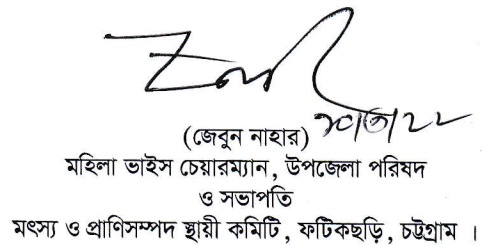 (জেবুন নাহার)
মহিলা ভাইস চেয়ারম্যান, উপজেলা পরিষদ
ও সভাপতি
মৎস্য ও প্রাণিসম্পদ স্থায়ী কমিটি, ফটিকছড়ি, চট্টগ্রাম ।